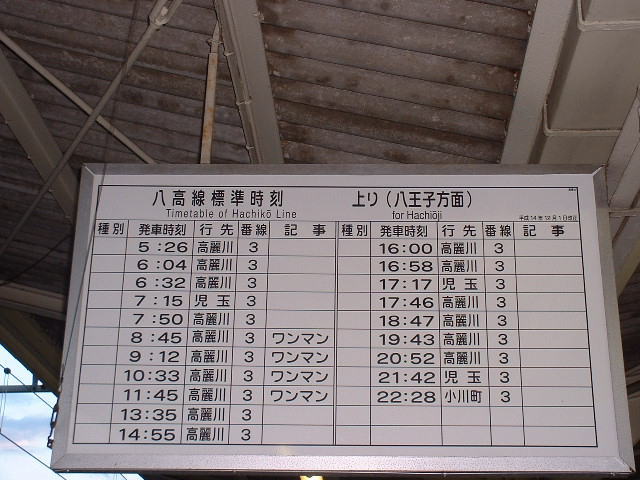 八高線標準時刻 上り（八王子方面）
Timetable of Hachikō Line for Hachiōji 平成14年12月1日改正
種別 発車時刻 行先 番線 記事 種別 発車時刻 行先 番線 記事
5:26 高麗川 3 16:00 高麗川 3
6:04 高麗川 3 16:58 高麗川 3
6:32 高麗川 3 17:17 児玉 3
7:15 児玉 3 17:46 高麗川 3
7:50 高麗川 3 18:47 高麗川 3
8:45 高麗川 3 ワンマン 19:43 高麗川 3
9:12 高麗川 3 ワンマン 20:52 高麗川 3
10:33 高麗川 3 ワンマン 21:42 児玉 3
11:45 高麗川 3 ワンマン 22:28 小川町 3
13:35 高麗川 3
14:55 高麗川 3